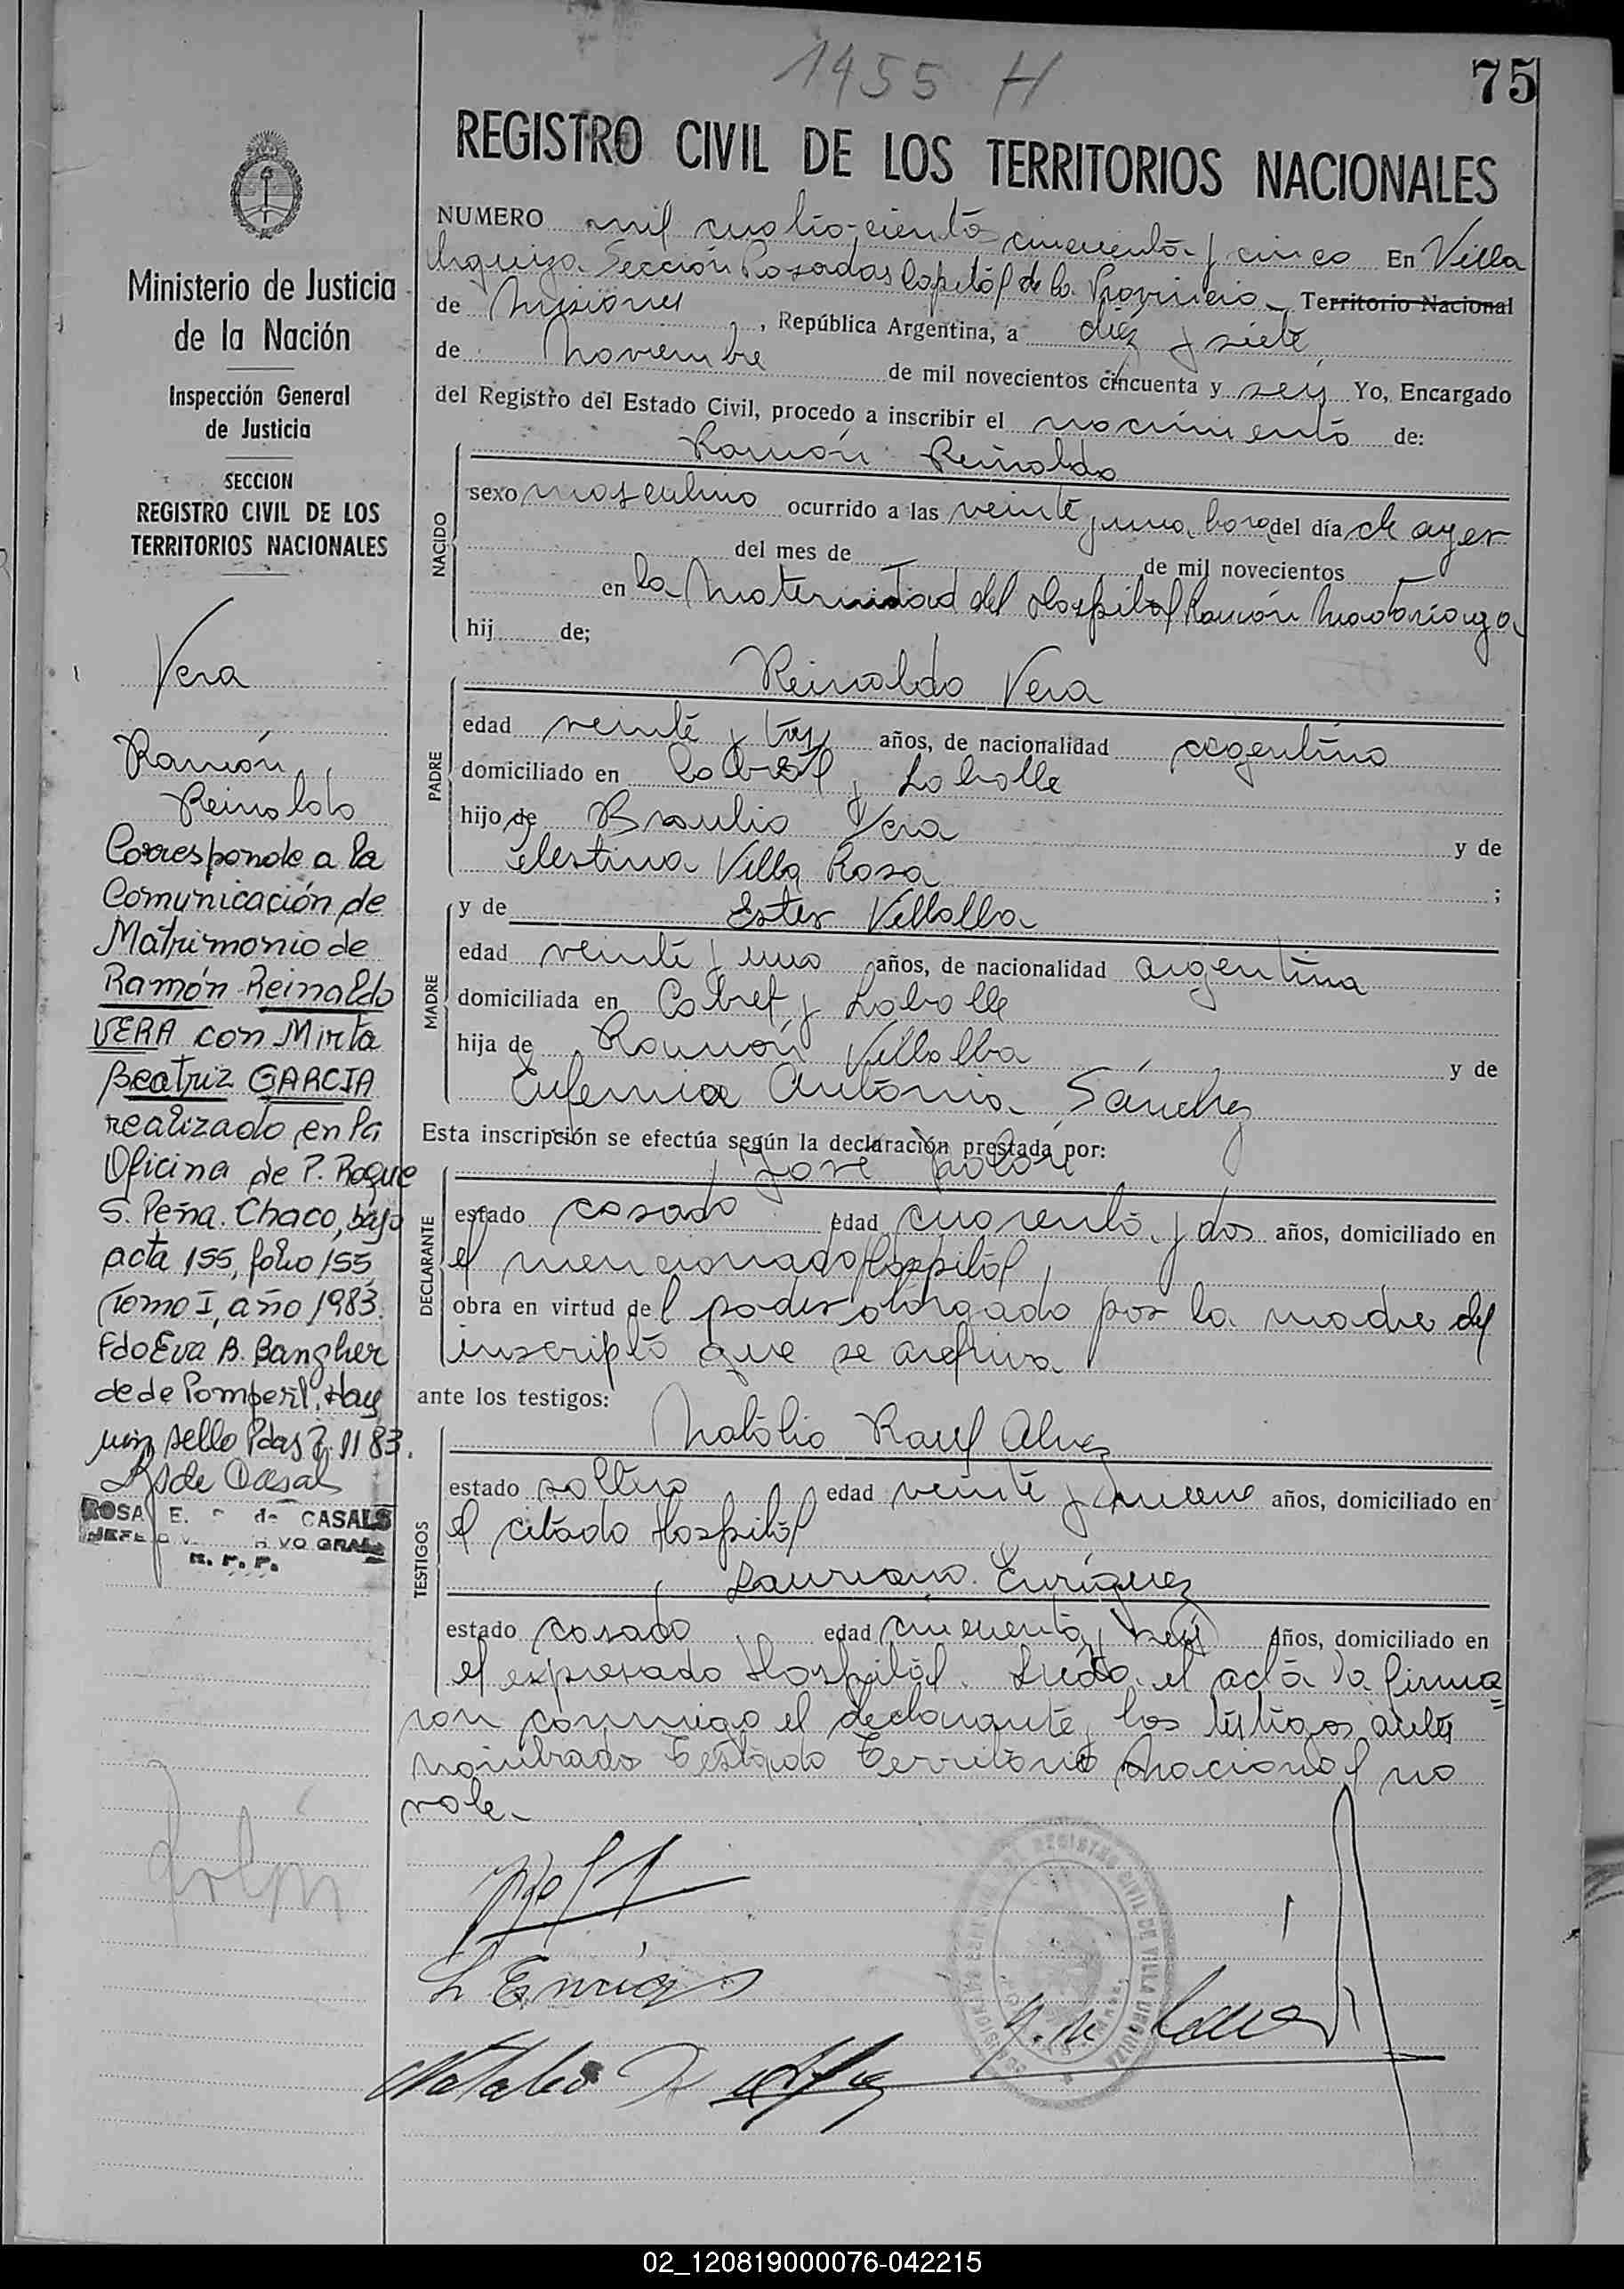 1455 H
75
REGISTRO CIVIL DE LOS TERRITORIOS NACIONALES
Ministerio de Justicia
de la Nación
Inspección General
de Justicia
SECCION
REGISTRO CIVIL DE LOS
TERRITORIOS NACIONALES
Vera
Ramón
Reinaldo
Corresponde a la
Comunicación de
Matrimonio de
Ramón Reinaldo
VERA con Mirta
Beatriz GARCIA
realizado en la
Oficina de P. Roque
S. Peña. Chaco, bajo
acta 155, folio 155
Tomo I, año 1983.
Fdo Eva B. Bangher
de de Pomperil. Hay
un sello Pdas 2.11 83.
de Casals
ROSA E. de CASALS
JEFE
NUMERO mil cuatrocientos cincuenta y cinco En Villa
Urquiza Sección Posadas Capital de la Provincia Territorio Nacional
de Misiones, República Argentina, a diez y siete
de Noviembre de mil novecientos cincuenta y seis Yo, Encargado
del Registro del Estado Civil, procedo a inscribir el nacimiento de:
Ramón Reinaldo
NACIDO
sexo masculino ocurrido a las veinte y una hora del día de ayer
del mes de de mil novecientos
en la Maternidad del Hospital Ramón Madariaga
hij de;
Reinaldo Vera
PADRE
edad veinte y tres años, de nacionalidad argentino
domiciliado en Cabral y Laballe
hijo de Braulio Vera y de
Celestina Villa Rosa ;
y de Ester Villalba
MADRE
edad veinte y uno años, de nacionalidad argentina
domiciliada en Cabral y Laballe
hija de Ramón Villalba y de
Eufemia Antonia Sánchez
Esta inscripción se efectúa según la declaración prestada por:
José
DECLARANTE
estado casado edad cuarenta y dos años, domiciliado en
el mencionado Hospital
obra en virtud del poder otorgado por la madre del
inscripto que se archiva
ante los testigos:
Natalio Raul Alvez
TESTIGOS
estado soltero edad veinte y nueve años, domiciliado en
el citado Hospital
Lauriano Enriquez
estado casado edad cincuenta y seis años, domiciliado en
el expresado Hospital. Leida el acta la firma=
ron conmigo el declarante y los testigos antes
nombrados Testado Territorio Nacional no
vale.
L Enriq
Natalio R
REGISTRO CIVIL DE VILLA URQUIZA
02_120819000076-042215